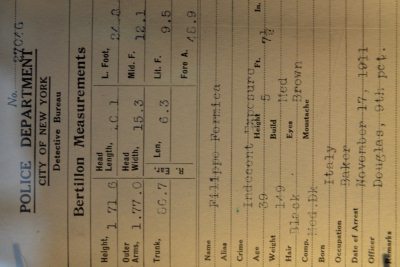 No. 27046
POLICE DEPARTMENT
CITY OF NEW YORK
Detective Bureau
Bertillon Measurements
Height, 1 71.6 Head Length, L. Foot,
Outer Arms, 1.77.0 Head Width, 15.3 Mid. F. 12.1
Trunk, Len, 6.3 Lit. F. 9.5
Fore A.
Name Filippo Formica
Alias
Crime Indecent Exposure
Age 39 Height 5 Ft. 7½ In.
Weight 149 Build Med
Hair Black Eyes Brown
Comp. Med.Dk Moustache
Born Italy
Occupation Baker
Date of Arrest November 17, 1911
Officer Douglas, 9th pct.
Remarks